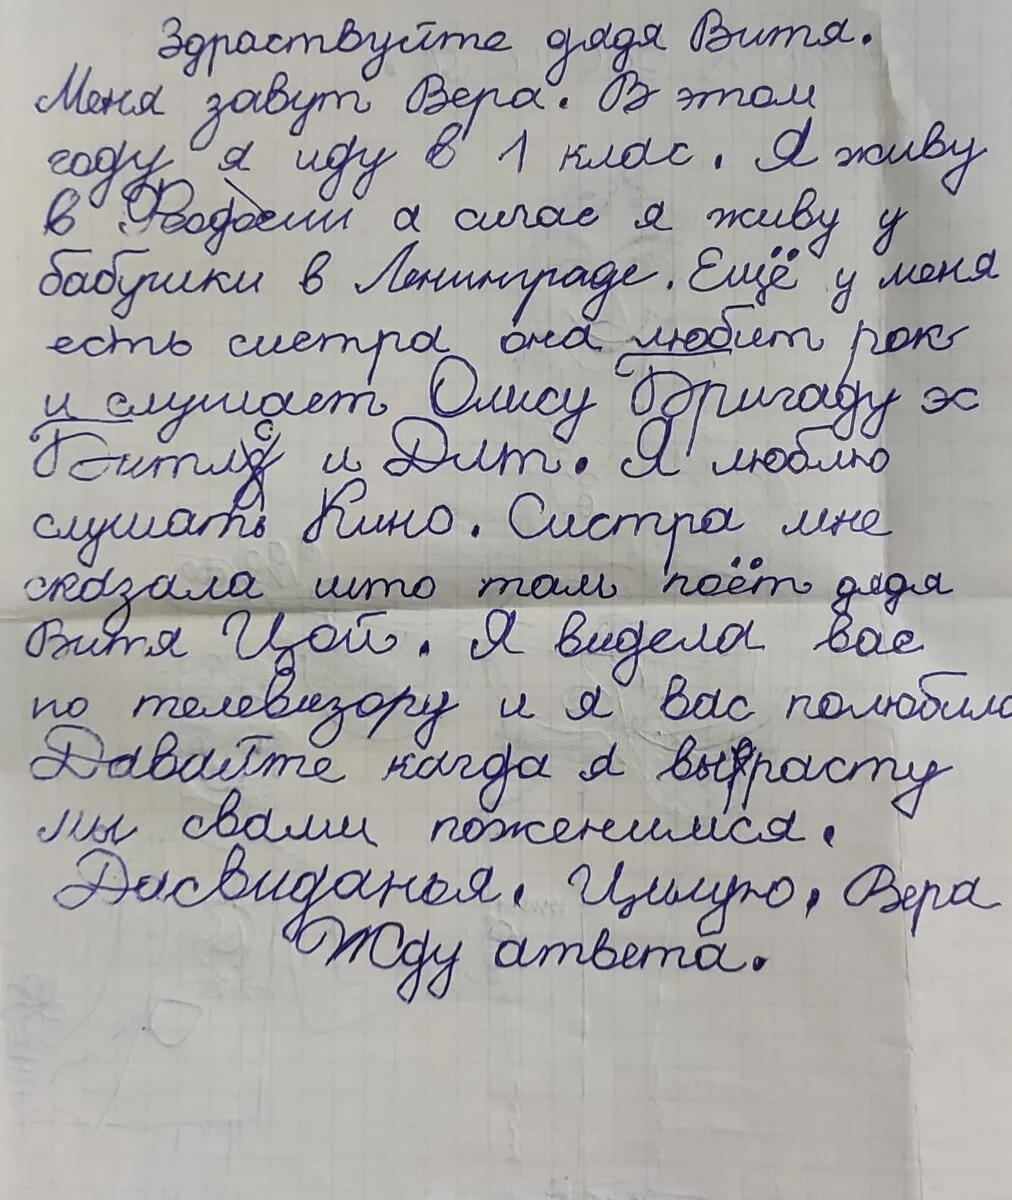 Здраствуйте дядя Витя.
Меня завут Вера. В этом
году я иду в 1 клас. Я живу
в Феодосии а сичас я живу у
бабушки в Ленинграде. Ещё у меня
есть систра она любит рок
и слушает Олису Бригаду эс
Битлс и Ддт. Я люблю
слушать Кино. Систра мне
сказала што там поёт дядя
Витя Цой. Я видела вас
по телевизору и я вас полюбила
Давайте кагда я вырасту
мы свами поженимся.
Дасвиданья. Цилую, Вера
Жду атвета.